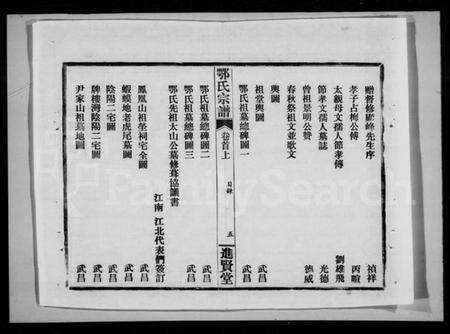 贈督修顯峰先生序 禎祥
孝子占梅公傳 丙暄
太親母文孺人節孝傳 劉雄飛
節孝文孺人墓誌 光德
曾祖景明公贊 德威
春秋祭祖文並歌文
輿圖
祖堂輿圖 武昌
鄂氏祖墓總碑圖一 武昌
鄂氏宗譜 卷首上 目錄 五 進賢堂
鄂氏祖墓總碑圖二 武昌
鄂氏祖墓總碑圖三 武昌
鄂氏先祖太山公墓修葺協議書
江南 江北代表們簽訂
鳳凰山祖塋祠宅全圖 武昌
蝦蟆地老虎尾墓圖 武昌
陰陽二宅圖 武昌
牌樓灣陰陽二宅圖 武昌
尹家山祖墓地圖 武昌
FamilySearch